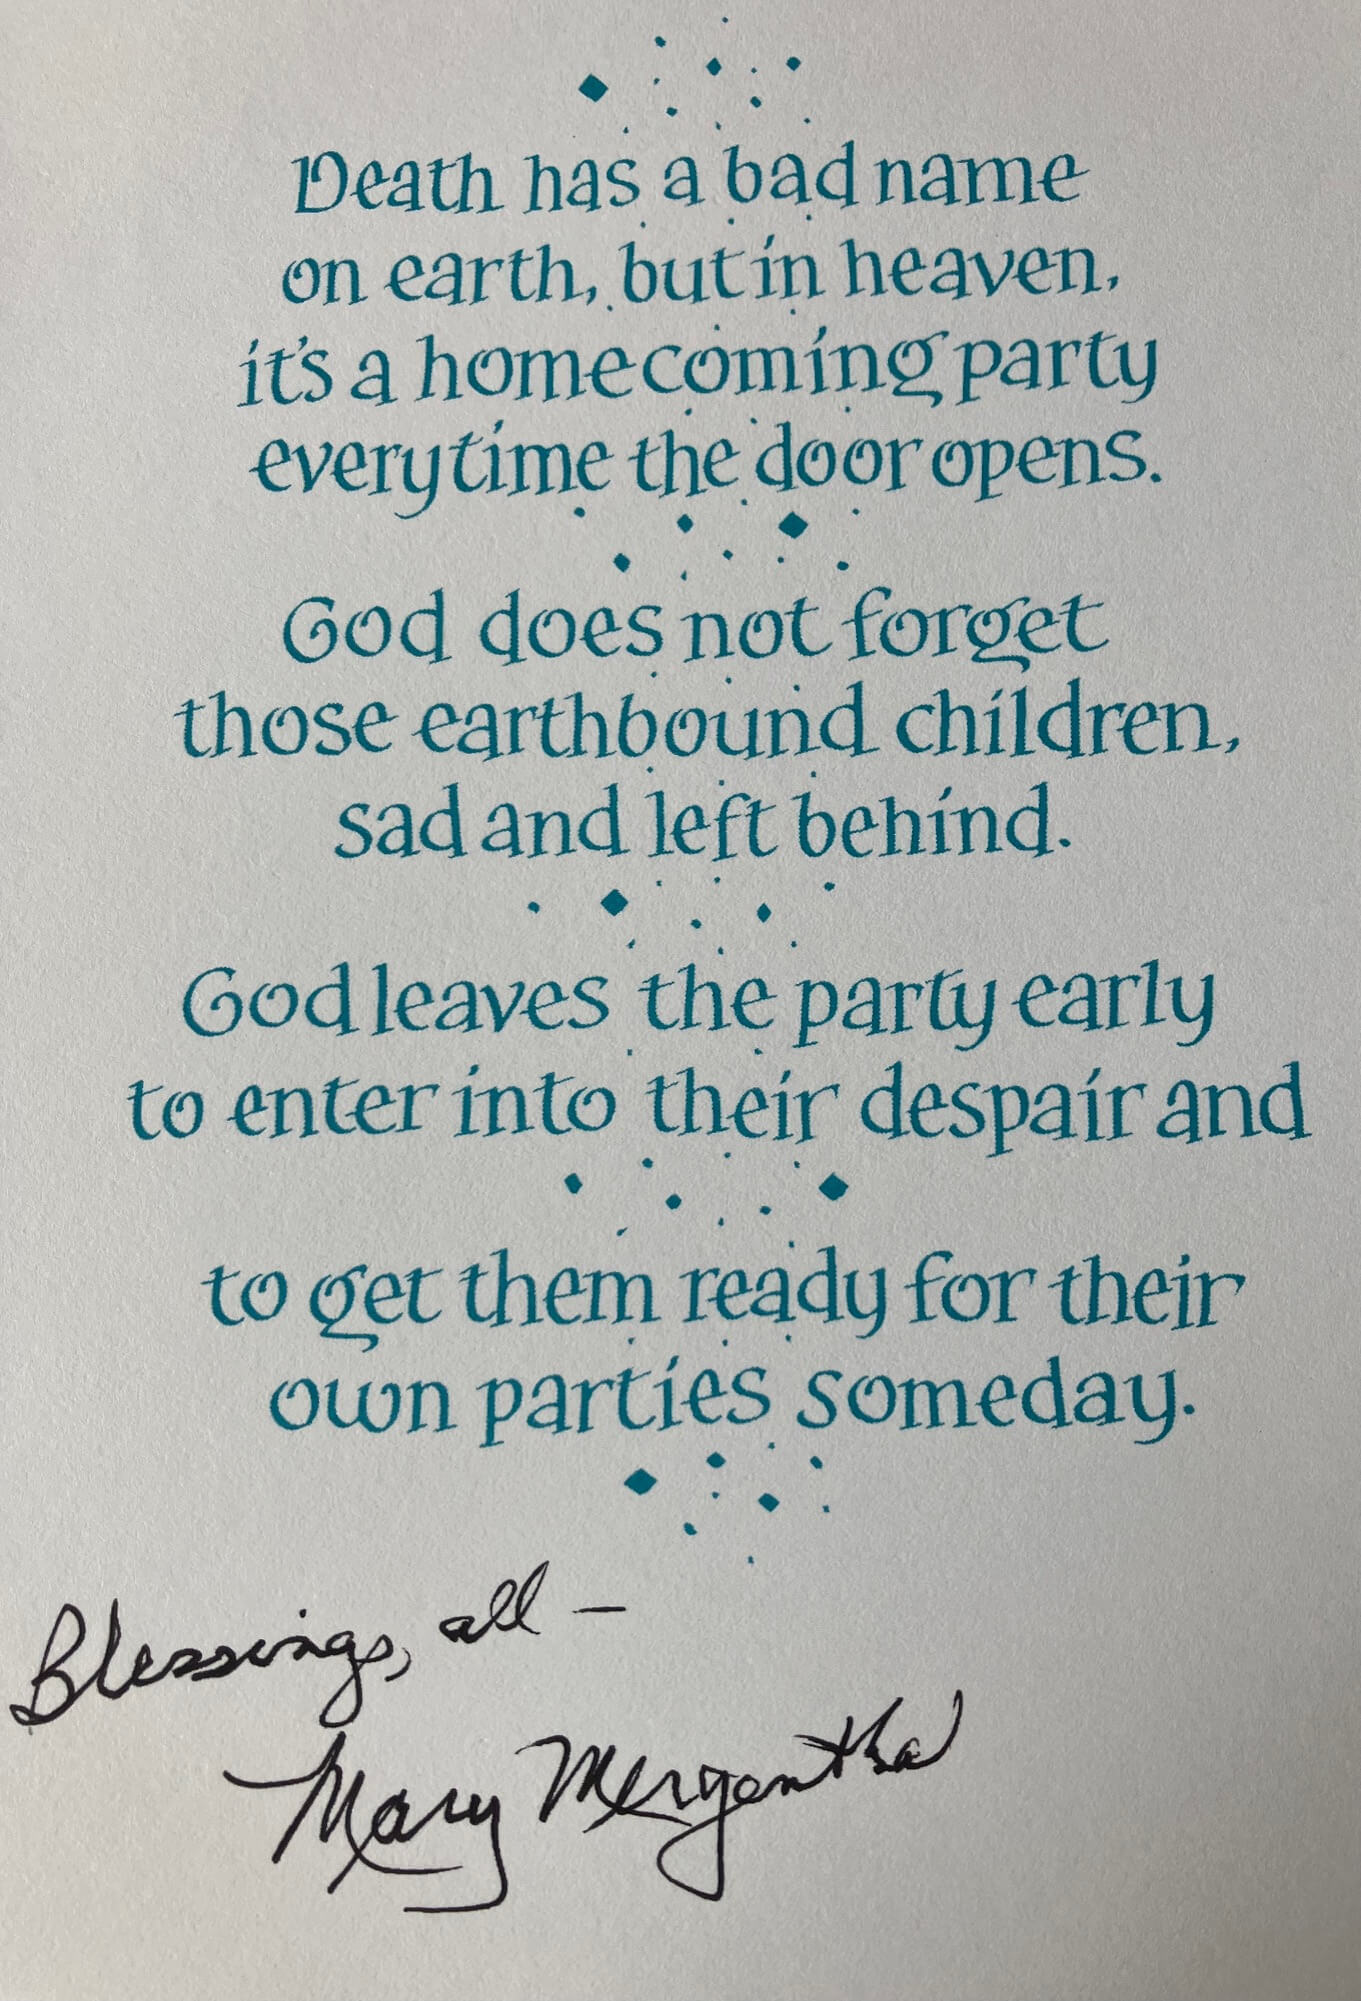 Death has a bad name
on earth, but in heaven,
it's a homecoming party
everytime the door opens.
God does not forget
those earthbound children,
sad and left behind.
God leaves the party early
to enter into their despair and
to get them ready for their
own parties someday.
Blessings, all —
Mary